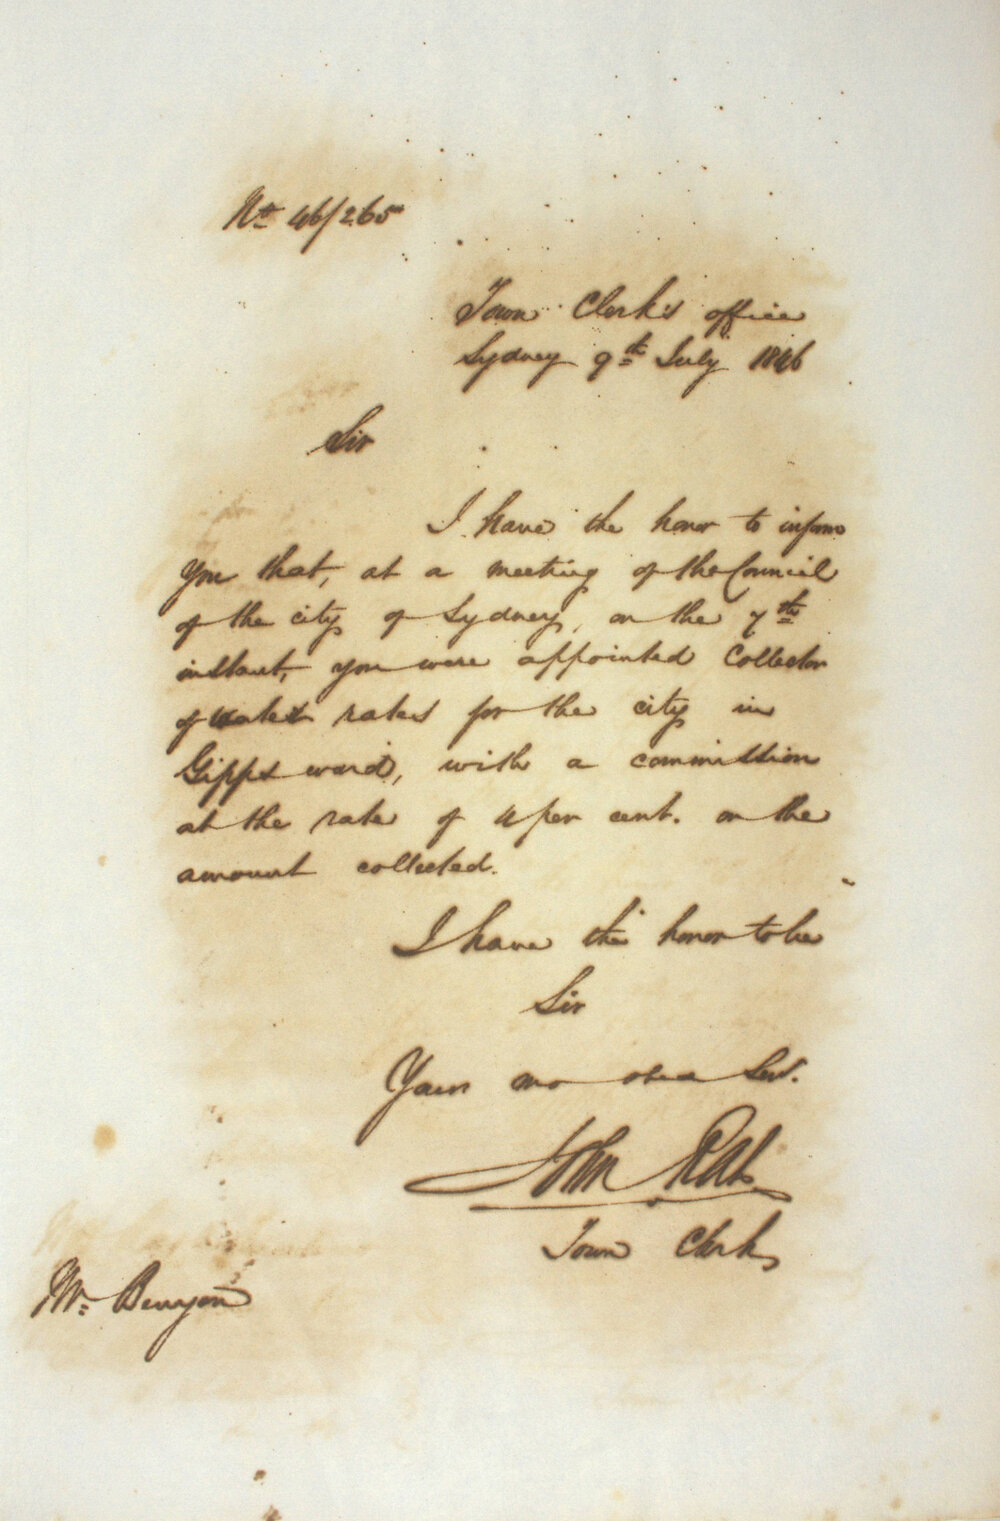 No 46/265
Town Clerk's office
Sydney 9th July 1846
Sir
I have the honor to inform
you that, at a meeting of the Council
of the city of Sydney, on the 7th
instant, you were appointed Collector
of water rates for the city in
Gipps ward, with a commission
at the rate of 4 per cent. on the
amount collected.
I have the honor to be
Sir
Your mo obed Serv.
John Rae
Town Clerk
Mr. Benyon